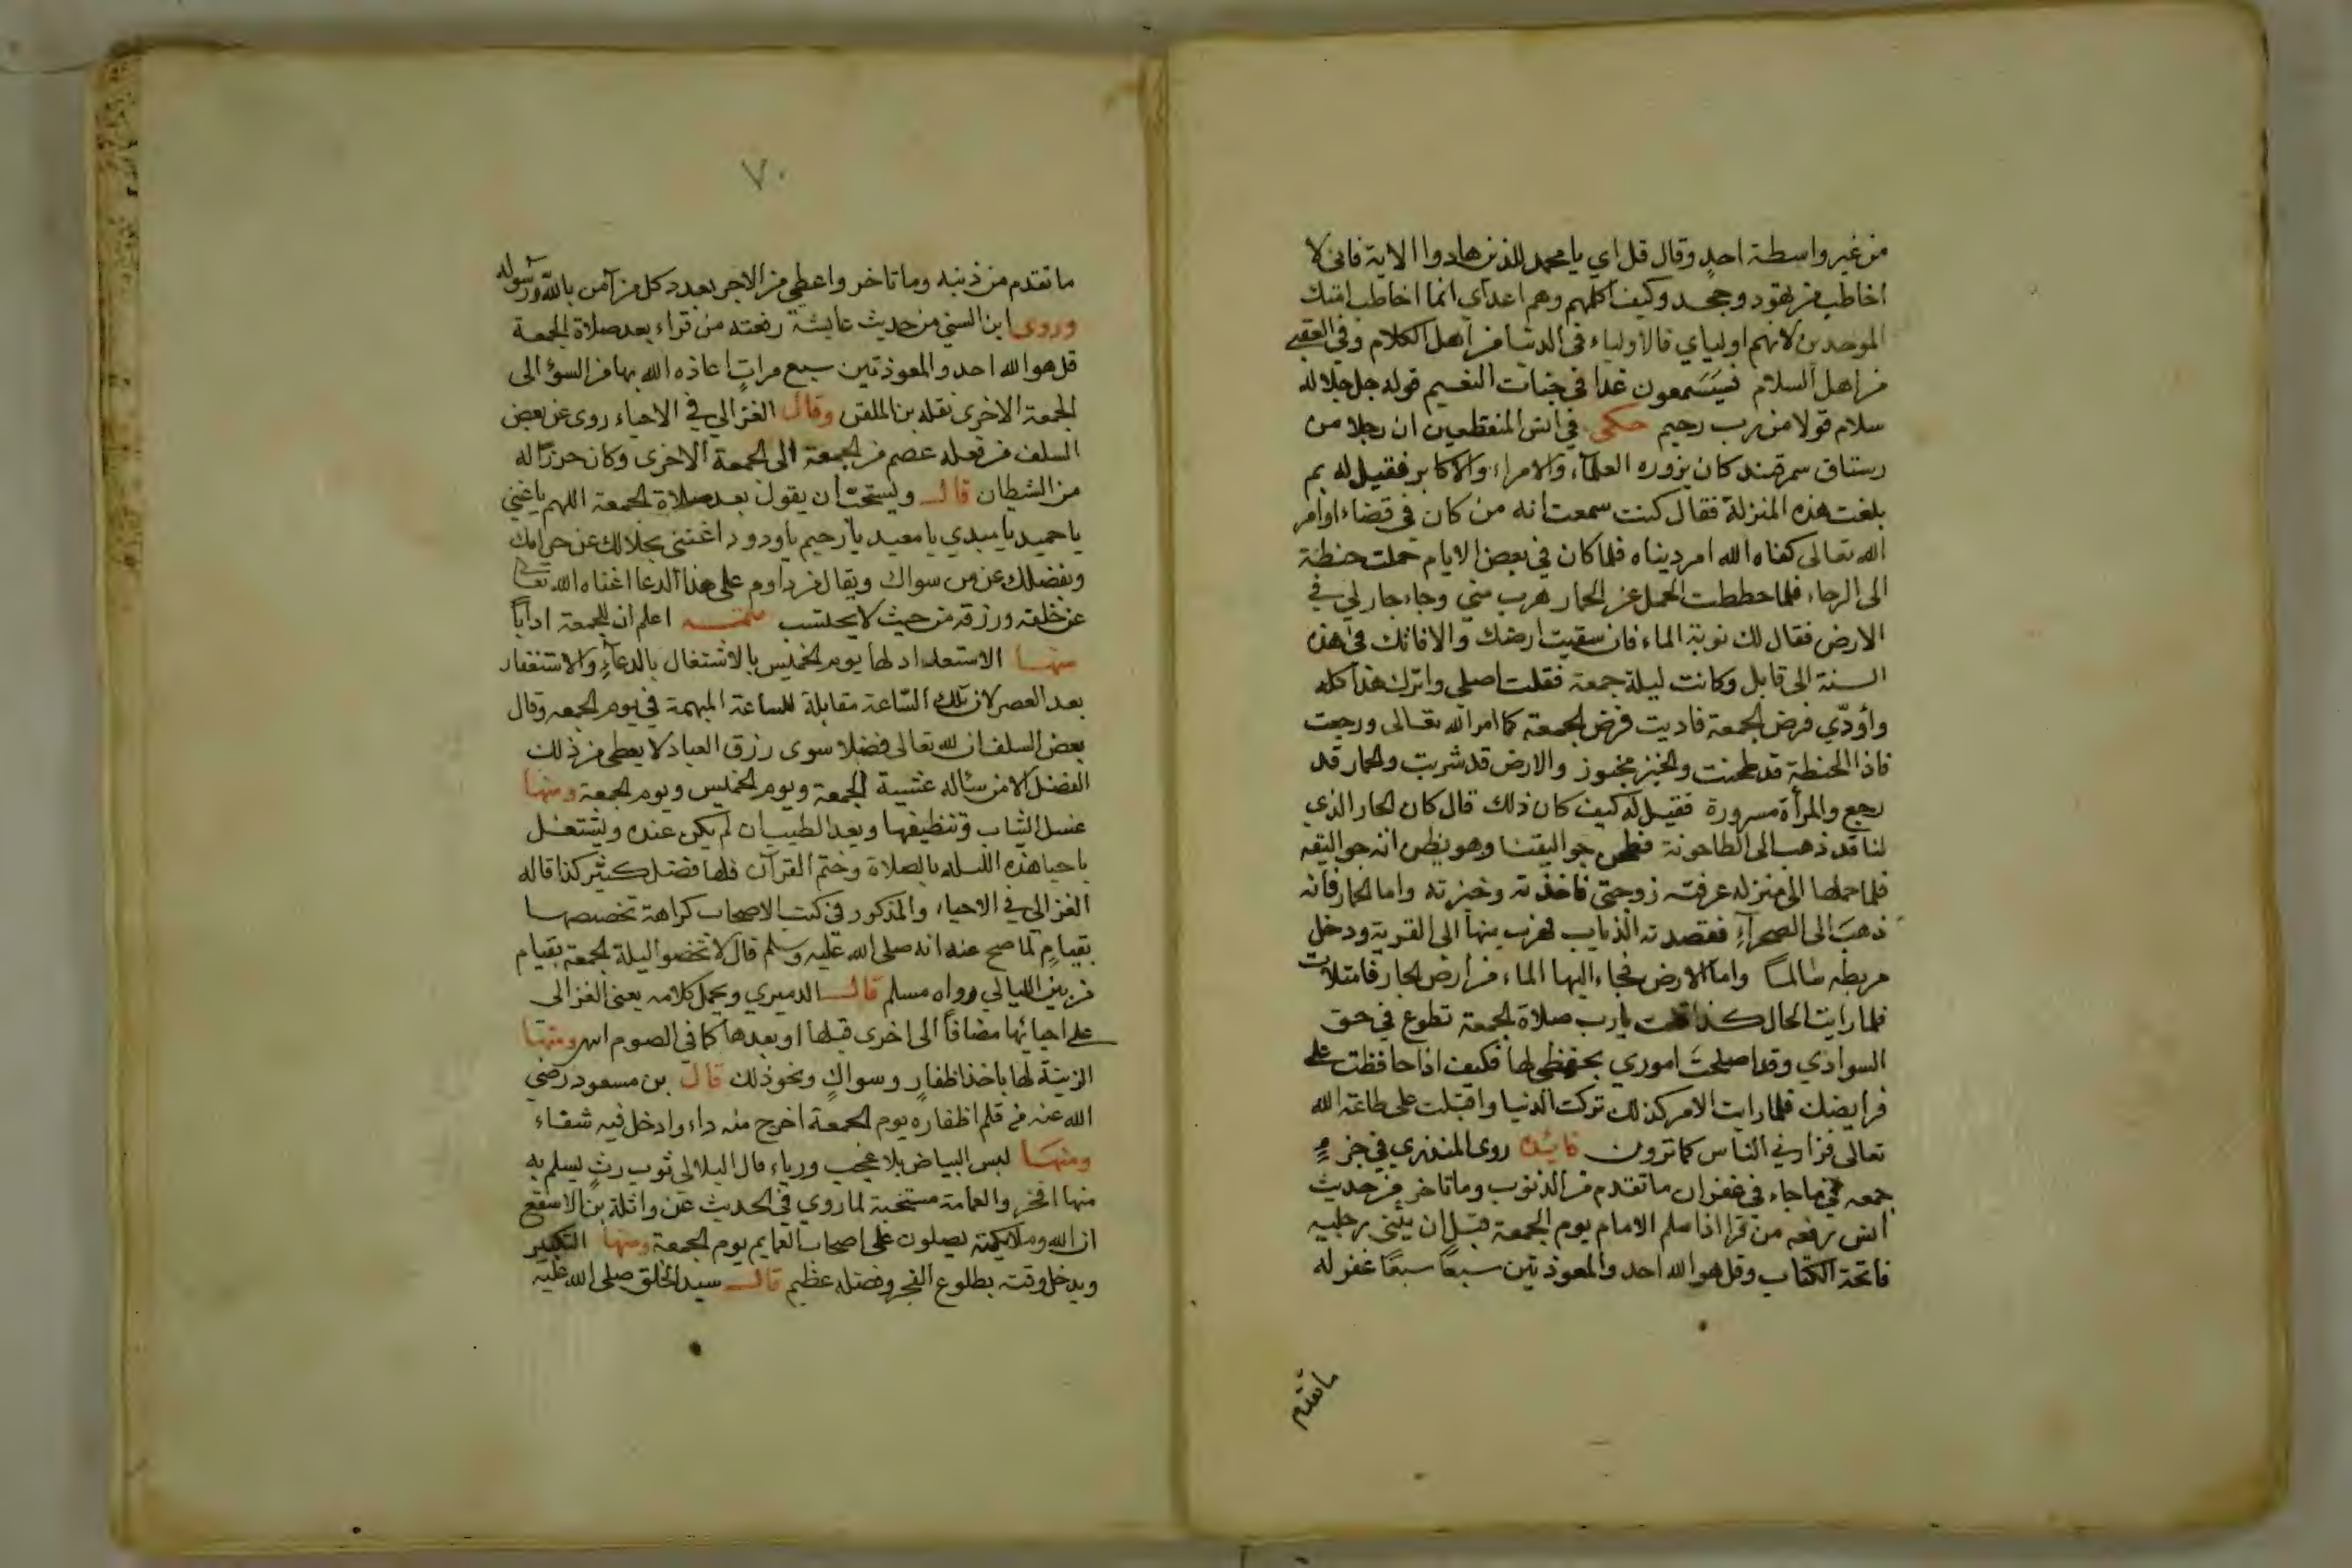 من غير واسطة احد وقال قل اي يا محمد للذين هادوا الاية فاني لا
اخاطب من يهود وجحد وكيف اكلهم وهم اعداي انما اخاطب امتك
الموحدين لانهم اوليائي فالاولياء في الدنيا من اهل الكلام وفي العقبى
من اهل السلام فيسمعون غدا في جنات النعيم قوله جل جلاله
سلام قولا من رب رحيم حكى في انس المنقطعين ان رجلا من
رستاق سمرقند كان يزوره العلماء والامراء والاكابر فقيل له بم
بلغت هذه المنزلة فقال كنت سمعت انه من كان في قضاء اوامر
الله تعالى كفاه الله امر دنياه فلما كان في بعض الايام حملت حنطة
الى الرحاء فلما حططت الحمل عن الحمار هرب مني وجاء جار لي في
الارض فقال لك نوبة الماء فان سقيت ارضك والا فاتك في هذه
السنة الى قابل وكانت ليلة جمعة فقلت اصلي واترك هذا كله
وأودّي فرض الجمعة فاديت فرض الجمعة كما امر الله تعالى ورجعت
فاذا الحنطة قد طحنت والخبز مخبوز والارض قد شربت والحمار قد
رجع والمرأة مسرورة فقيل له كيف كان ذلك قال كان الجار الذي
لنا قد ذهب الى الطاحونة فطحن جواليقنا وهو يظن انه جواليقه
فلما حملها الى منزله عرفته زوجتي فاخذته وخبزته واما الحمار فانه
ذهب الى الصحراءِ فقصدته الذياب فهرب منها الى القرية ودخل
مربطه سالما واما الارض فجاء اليها الماء من ارض الجار فامتلات
فلما رايت الحال كذا قلت يارب صلاة الجمعة تطوع في حق
السوادي وقد اصلحت اموري بحفظي لها فكيف اذا حافظت على
فرايضك فلما رايت الامر كذلك تركت الدنيا واقبلت على طاعة الله
تعالى فزارني الناس كما ترون فائدة روى المنذري في جزءٍ
جمعه في ما جاء في غفران ما تقدم من الذنوب وما تاخر من حديث
انس يرفعه من قرا اذا سلم الامام يوم الجمعة قبل ان يثني رجليه
فاتحة الكتاب وقل هو الله احد والمعوذتين سبعًا سبعًا غفر له
ما تقدم
٧٠
ما تقدم من ذنبه وما تاخر واعطي من الاجر بعدد كل من آمن بالله ورسوله
وروى ابن السني من حديث عايشة رفعته من قراء بعد صلاة الجمعة
قل هو الله احد والمعوذتين سبع مراتٍ اعاذه الله بها من السوء الى
الجمعة الاخرى نقله بن الملقن وقال الغزالي في الاحياء روى عن بعض
السلف من فعله عصم من الجمعة الى الجمعة الاخرى وكان حرزًا له
من الشيطان قال ويستحب أن يقول بعد صلاة الجمعة اللهم يا غني
يا حميد يا مبدي يا معيد يا رحيم يا ودود اغنني بحلالك عن حرامك
وبفضلك عن من سواك ويقال من داوم على هذا الدعا اغناه الله تعالى
عن خلقه ورزقه من حيث لا يحتسب اعلم ان للجمعة ادابًا
منها الاستعداد لها يوم الخميس بالاشتغال بالدعآءِ والاستغفار
بعد العصر لان تلك السّاعة مقابلة للساعة المبهمة في يوم الجمعه وقال
بعض السلف ان لله تعالى فضلا سوى رزق العباد لا يعطي من ذلك
الفضل الا من سئاله عشية الجمعة ويوم الخميس ويوم الجمعة ومنها
غسل الثياب وتنظيفها ويعد الطيب ان لم يكن عنده ويشتغل
باحيا هذه الليله بالصلاة وختم القرآن فلها فضل كثير كذا قاله
الغزالي في الاحياء والمذكور في كتب الاصحاب كراهة تخصيصها
بقيامٍ لما صح عنه انه صلى الله عليه وسلم قال لا تخصوا ليلة الجمعة بقيام
من بين الليالي رواه مسلم قال الدميري ويحمل كلامه يعني الغزالى
على احيائها مضافاً الى اخرى قبلها او بعدها كما في الصوم اهـ ومنها
الزينة لها باخذ اظفارٍ وسواكٍ ونحو ذلك قال بن مسعود رضي
الله عنه من قلم اظفاره يوم الجمعة اخرج منه داء وادخل فيه شفاء
ومنها لبس البياض بلا عجب ورياء قال البلالي ثوب رثٍ يسلم به
منها افخر والعمامة مستحبة لما روي في الحديث عن واثلة بن الاسقع
ان الله وملايكته يصلون على اصحاب العمايم يوم الجمعة ومنها التبكير
ويدخل وقته بطلوع الفجر وفضله عظيم قال سيد الخلق صلى الله عليه